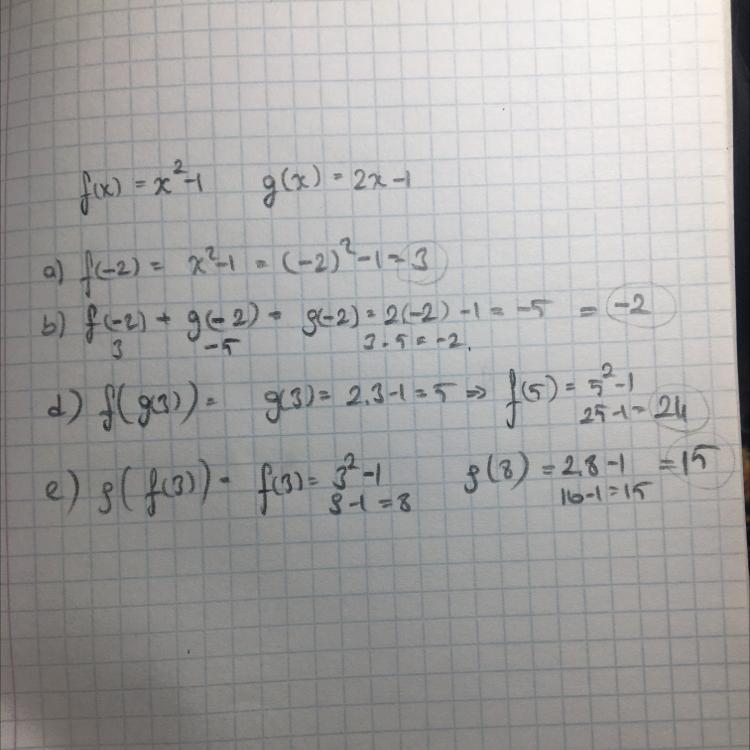 f(x) = x²-1 g(x) = 2x-1
a) f(-2) = x²-1 = (-2)²-1 = 3
b) f(-2) + g(-2) = g(-2) = 2(-2) -1 = -5 = -2
3 -5 3-5 = -2.
d) f(g(3)) = g(3) = 2.3-1 = 5 ⇒ f(5) = 5²-1
25-1 = 24
e) g(f(3)) = f(3) = 3²-1 g(8) = 2.8-1 = 15
9-1 = 8 16-1 = 15